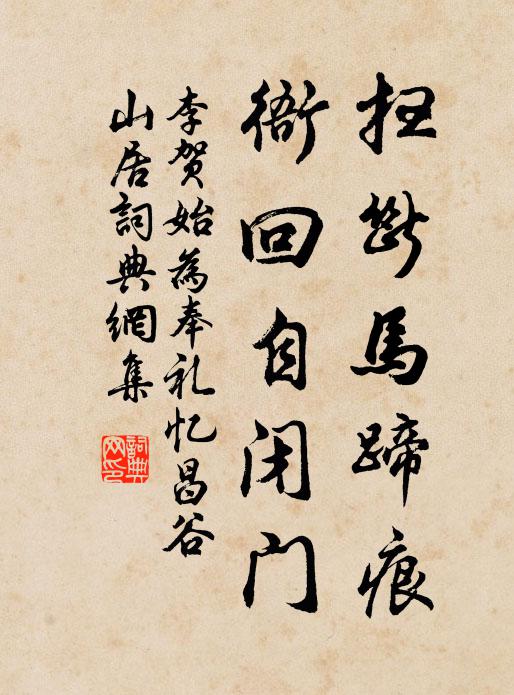 扫断馬蹄痕
衙回自闭门
李贺始為奉礼忆昌谷
山居詞典網集
詞典
网印